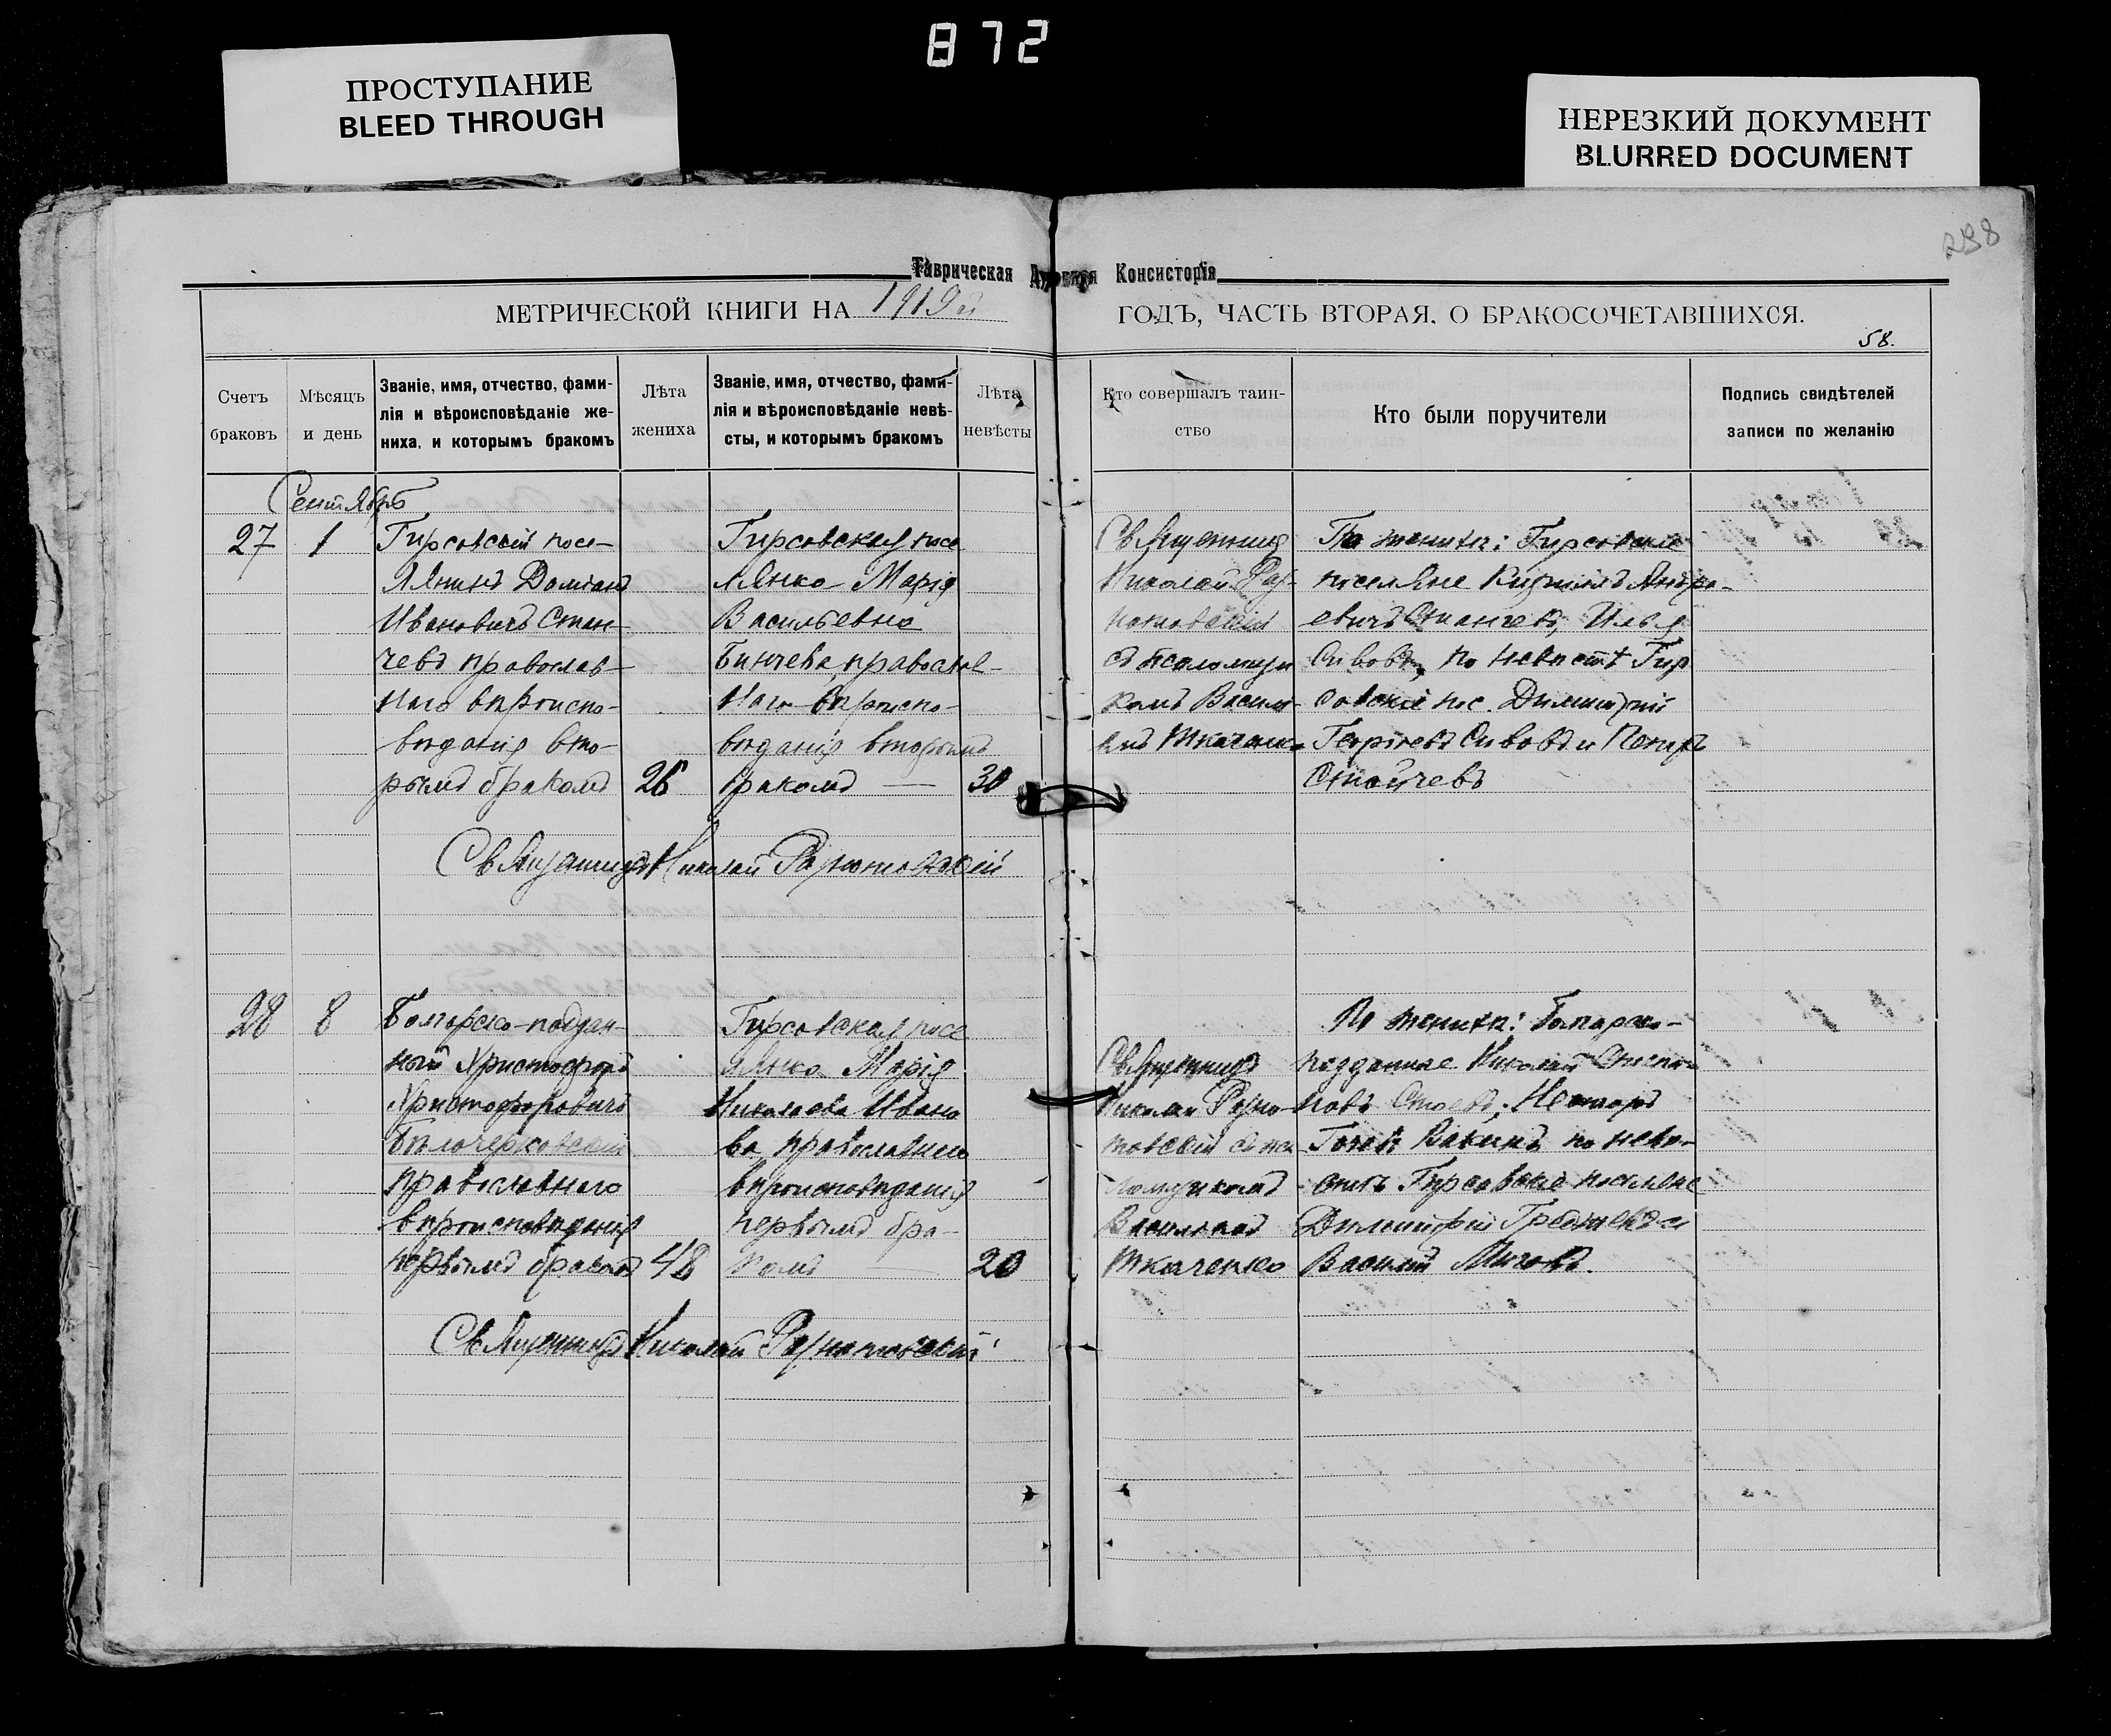 872
ПРОСТУПАНИЕ
BLEED THROUGH
НЕРЕЗКИЙ ДОКУМЕНТ
BLURRED DOCUMENT
298
Таврическая Духовная Консисторія
МЕТРИЧЕСКОЙ КНИГИ НА 1919й ГОДЪ, ЧАСТЬ ВТОРАЯ, О БРАКОСОЧЕТАВШИХСЯ.
58.
Счетъ
браковъ
Мѣсяцъ
и день
Званіе, имя, отчество, фами-
лія и вѣроисповѣданіе же-
ниха, и которымъ бракомъ
Лѣта
жениха
Званіе, имя, отчество, фами-
лія и вѣроисповѣданіе невѣ-
сты, и которымъ бракомъ
Лѣта
невѣсты
Кто совершалъ таин-
ство
Кто были поручители
Подпись свидѣтелей
записи по желанію
Сентябрь
27
1
Гирсовскій посе-
лянинъ Доміанъ
Ивановичъ Стан-
чевъ православ-
наго вѣроиспо-
вѣданія вто-
рымъ бракомъ
26
Гирсовская посе
лянка Марія
Васильевна
Бинчева, православ-
наго вѣроиспо-
вѣданія вторымъ
бракомъ
30
Священникъ
Николай Раз-
нотовскій
съ псаломщи
комъ Васил-
іемъ Ткаченко
По женихѣ: Гирсовскіе
поселяне Кириллъ Андре-
евичъ Станчевъ, Илья
Сивовъ, по невѣстѣ Гир
совскіе пос. Димитрій
Георгіевъ Сивовъ и Петръ
Стойчевъ
Священникъ Николай Разнотовскій
28
8
Болгарско-поддан-
ный Христофоръ
Христофоровичъ
Бѣлочерковскій
православнаго
вѣроисповѣданія
первымъ бракомъ
48
Гирсовская посе
лянка Марія
Николаева Ивано
ва, православнаго
вѣроисповѣданія
первымъ бра-
комъ
20
Священникъ
Николай Разно-
товскій съ пса
ломщикомъ
Ткаченко
По женихѣ: Болгарско-
подданные Николай
Стоевъ, по невѣ-
стѣ Гирсовскіе поселяне
Димитрій
Василій
Священникъ Николай Разнотовскій